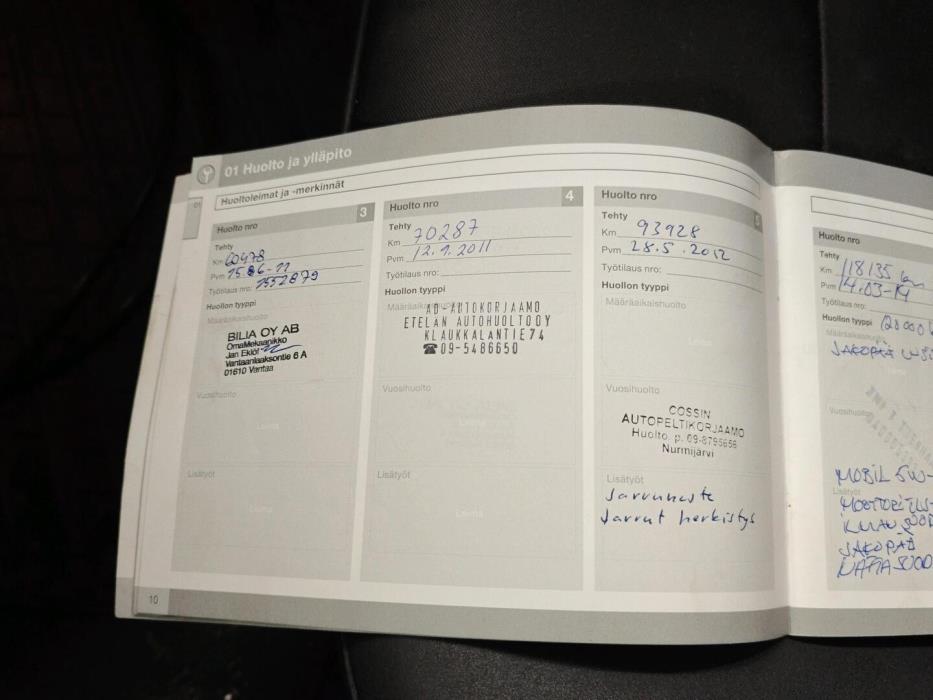 01 Huolto ja ylläpito
Huoltoleimat ja -merkinnät
01
Huolto nro 3
Tehty
Km 60478
Pvm
Työtilaus nro: 1552879
Huollon tyyppi
Määräaikaishuolto
BILIA OY AB
OmaMekaanikko
Jan Eklöf
Vantaanlaaksontie 6 A
01610 Vantaa
Vuosihuolto
Leima
Lisätyöt
Leima
Huolto nro 4
Tehty
Km 70287
Pvm 12.1.2011
Työtilaus nro:
Huollon tyyppi
Määräaikaishuolto
AD-AUTOKORJAAMO
ETELÄN AUTOHUOLTO OY
KLAUKKALANTIE 74
☎ 09-5486650
Vuosihuolto
Leima
Lisätyöt
Leima
Huolto nro 5
Tehty
Km 93928
Pvm 28.5.2012
Työtilaus nro:
Huollon tyyppi
Määräaikaishuolto
Leima
Vuosihuolto
COSSIN
AUTOPELTIKORJAAMO
Huolto. p. 09-8795656
Nurmijärvi
Lisätyöt
Jarruneste
Jarrut herkistys
Huolto nro
Tehty
Km 118135 km
Pvm 14.03-14
Työtilaus nro:
Huollon tyyppi
Määräaikaishuolto
JAKOPÄÄ
Leima
Vuosihuolto
MOBIL 5W-
Lisätyöt
JAKOPÄÄ
10